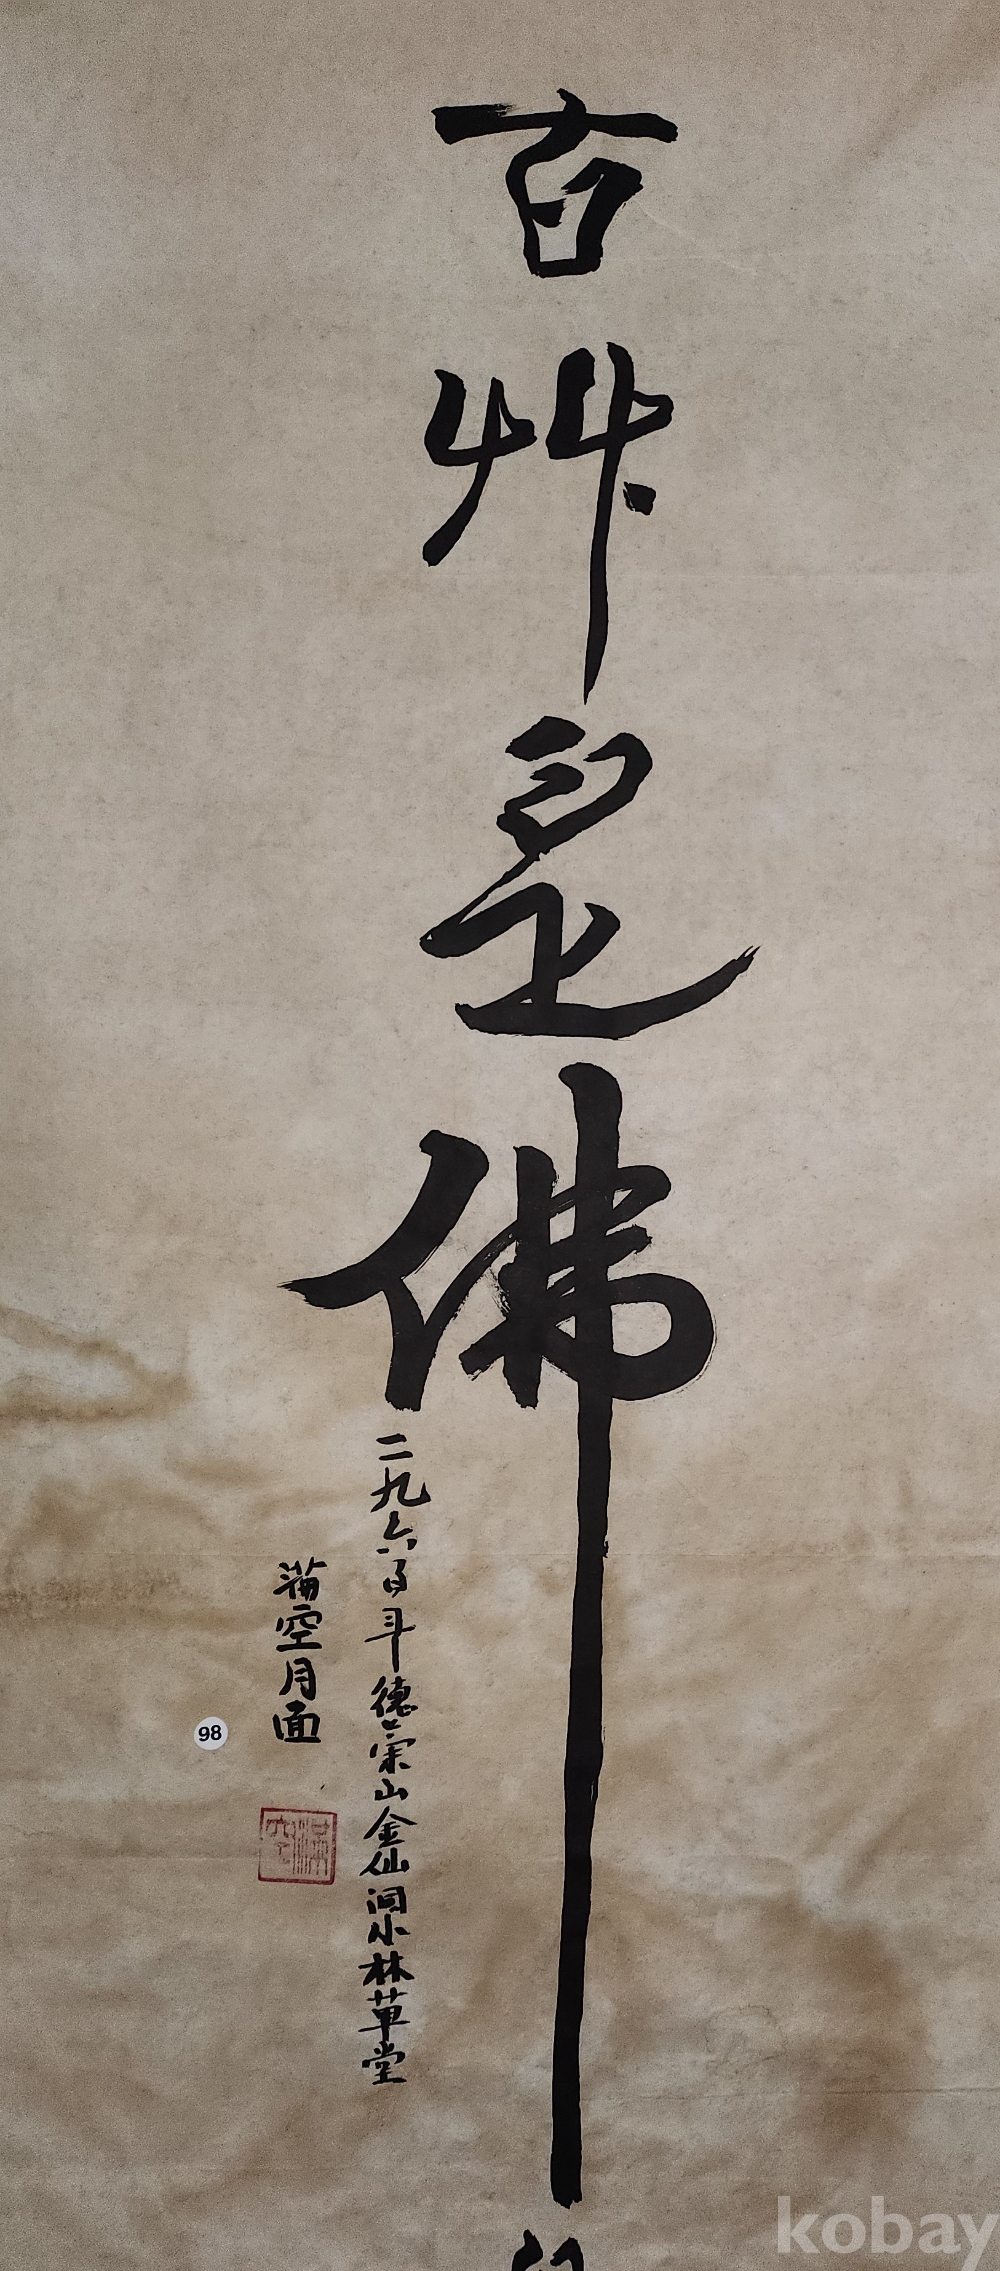 百艸是佛
二九六 德崇山金仙洞小林草堂
滿空月面
滿空
98
kobay